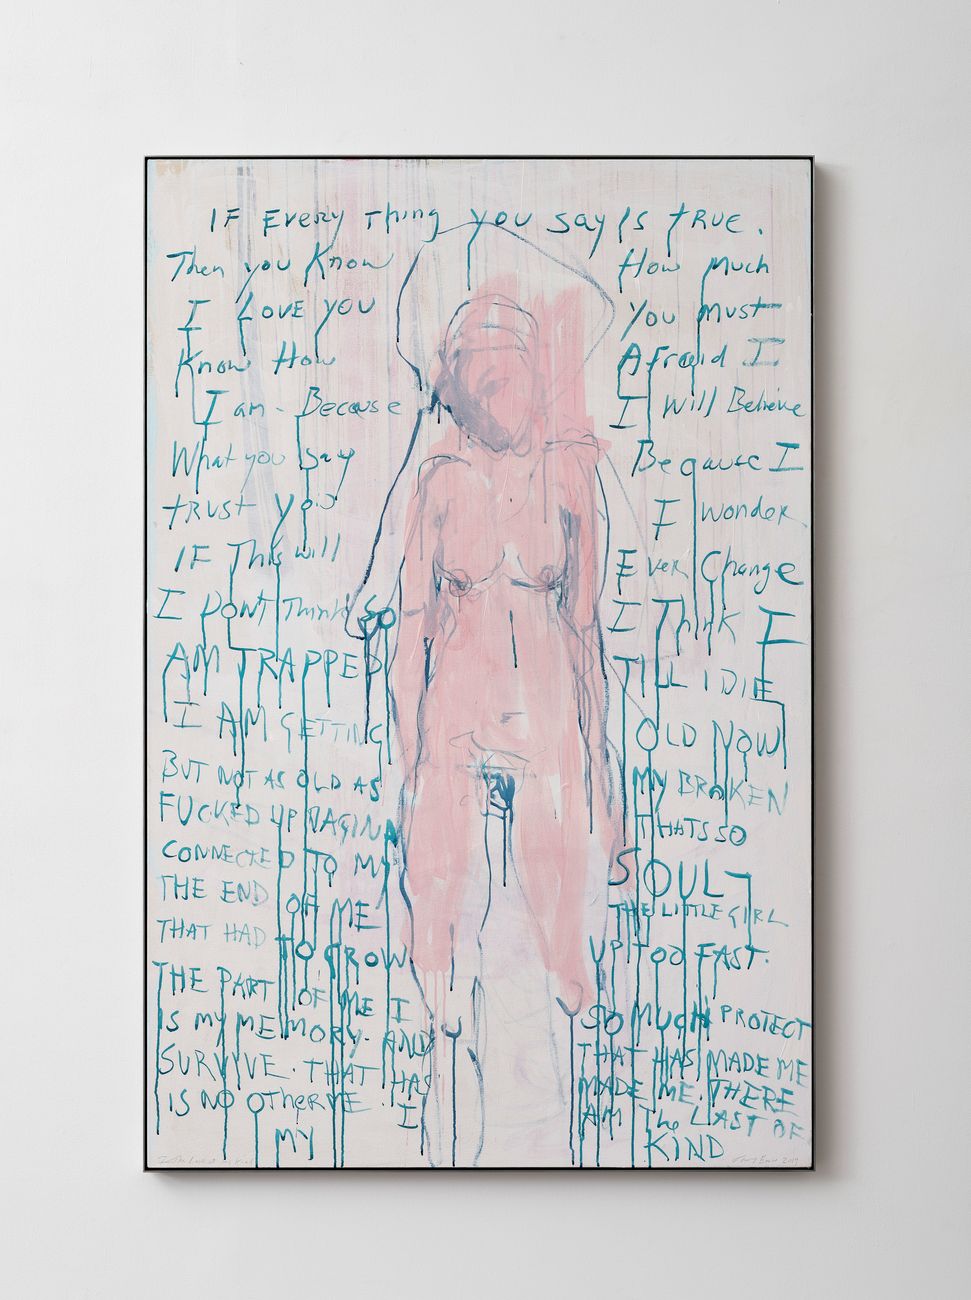 IF EVERY Thing you say Is TRUE.
Then you Know How Much
I Love you You Must
Know How Afraid I
I am - Because I Will Believe
What you Say Because I
TRUST you I Wonder
IF This will Ever Change
I DONT Think SO I Think I
AM TRAPPED TILL I DIE
I AM GETTING OLD NOW
BUT NOT AS OLD AS MY BROKEN
FUCKED UP VAGINA THATS SO
CONNECTED TO MY SOUL
THE END OF ME THE LITTLE GIRL
THAT HAD TO GROW UP TOO FAST.
THE PART OF ME I SO MUCH PROTECT
IS MY MEMORY. AND THAT HAS MADE ME
SURVIVE. THAT HAS MADE ME. THERE
IS NO OTHER ME. I AM The LAST OF
MY KIND